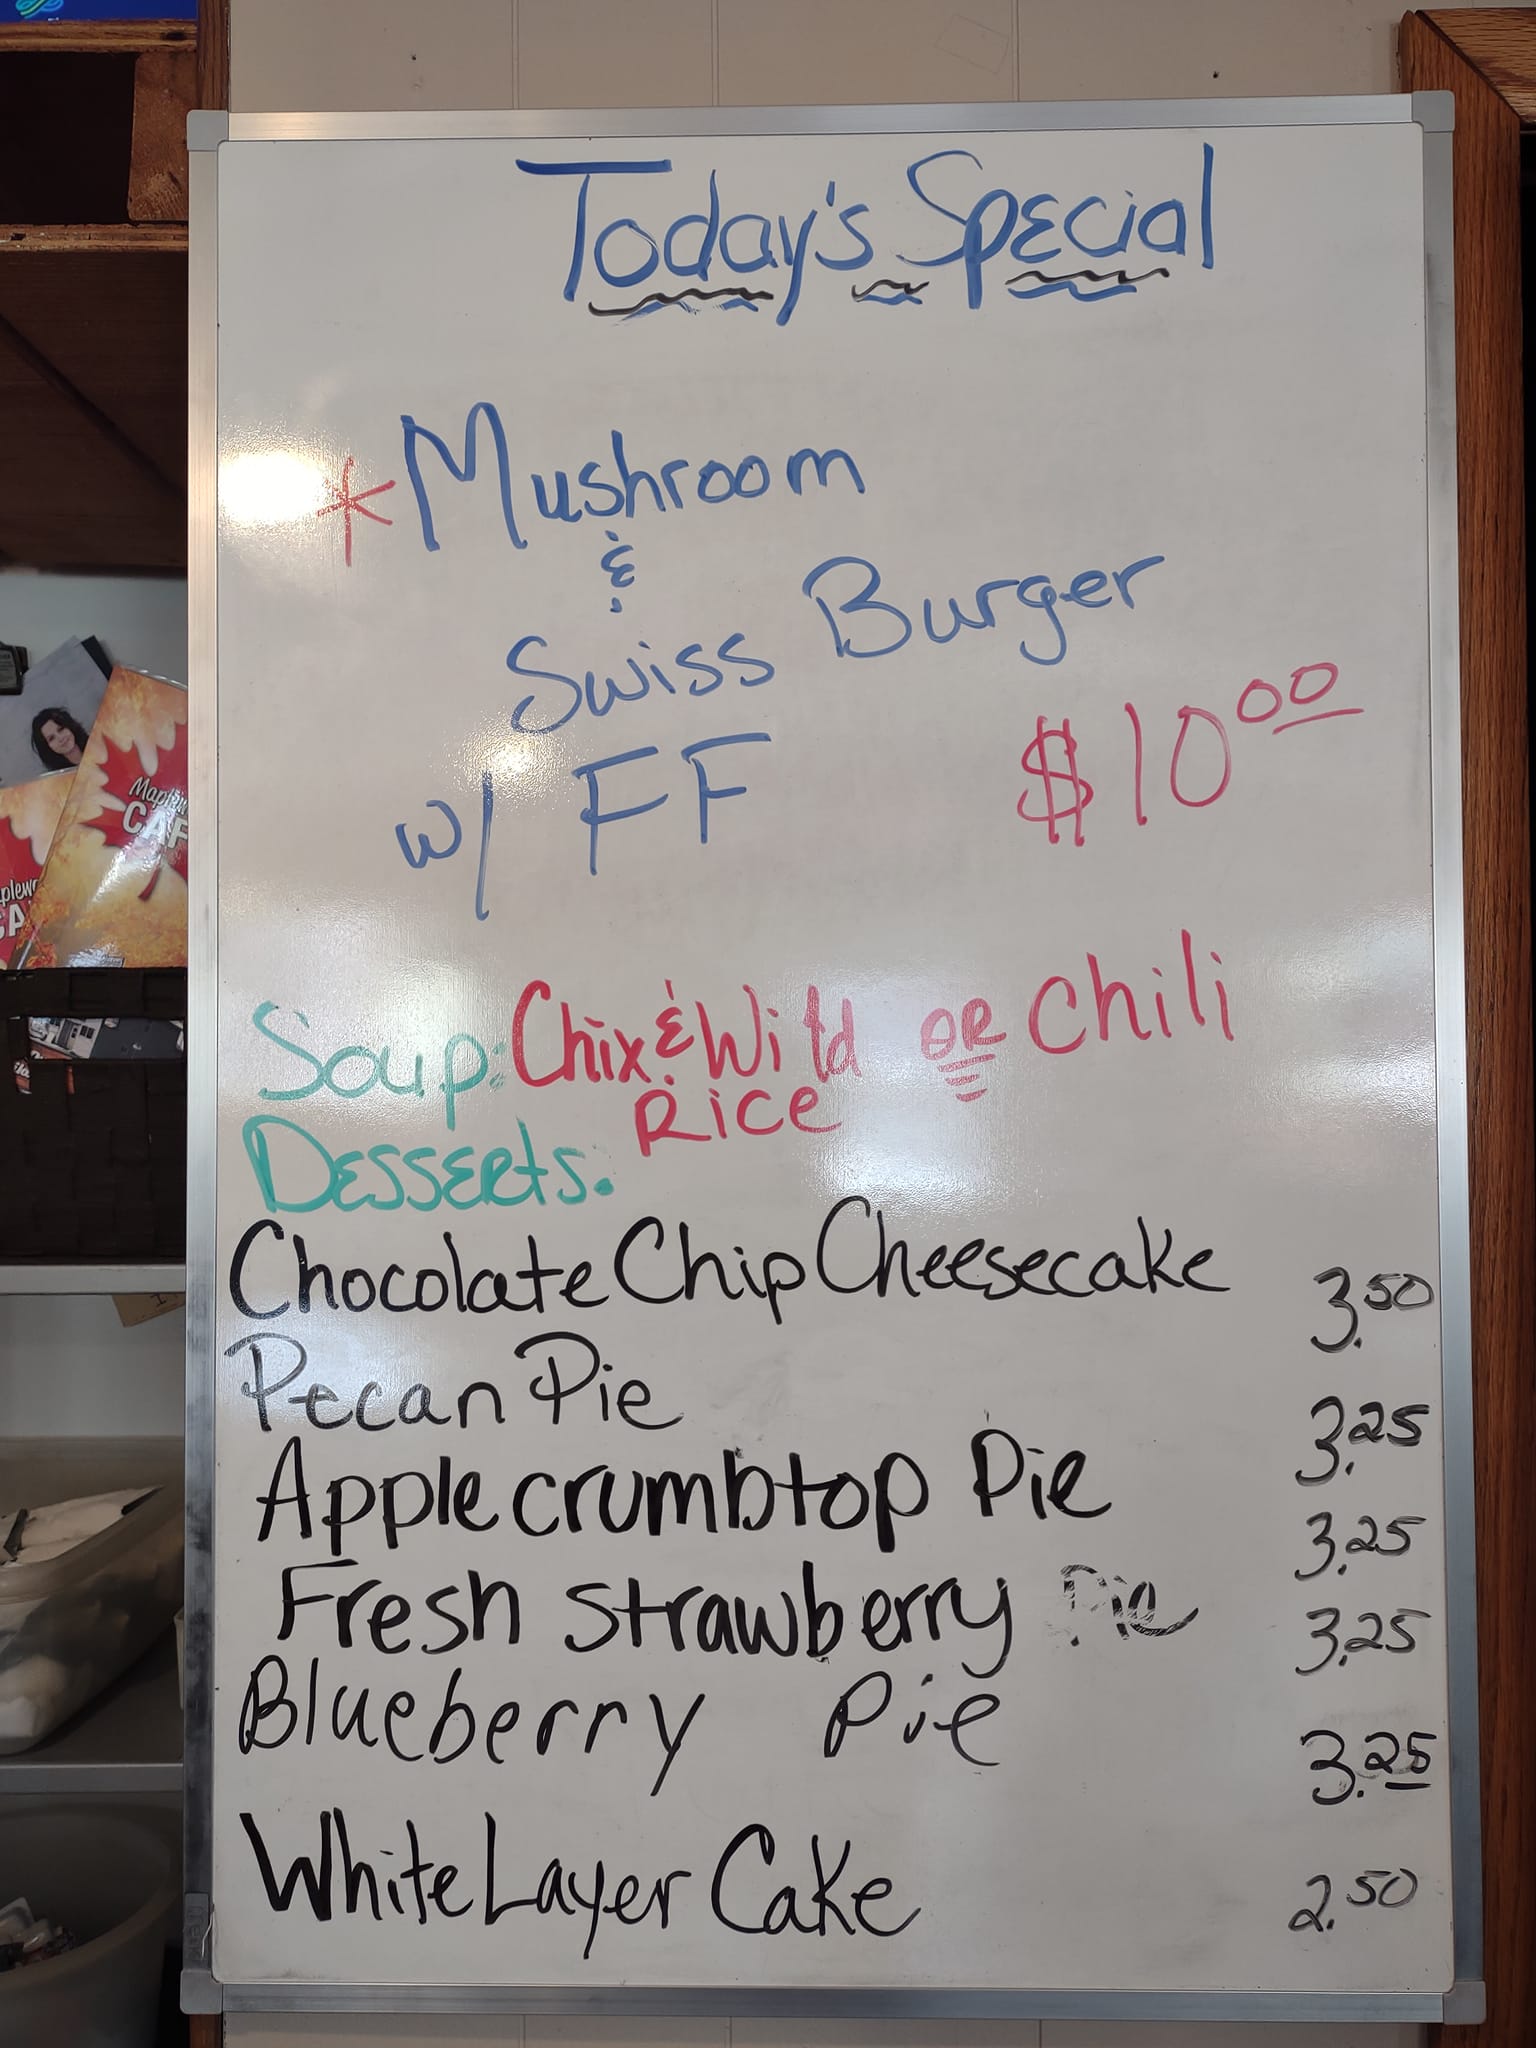 Today's Special
* Mushroom
&
Swiss Burger
w/ FF $10.00
Soup: Chix & Wild OR Chili
Rice
Desserts:
Chocolate Chip Cheesecake 3.50
Pecan Pie 3.25
Apple crumbtop Pie 3.25
Fresh strawberry Pie 3.25
Blueberry Pie 3.25
White Layer Cake 2.50
CAF